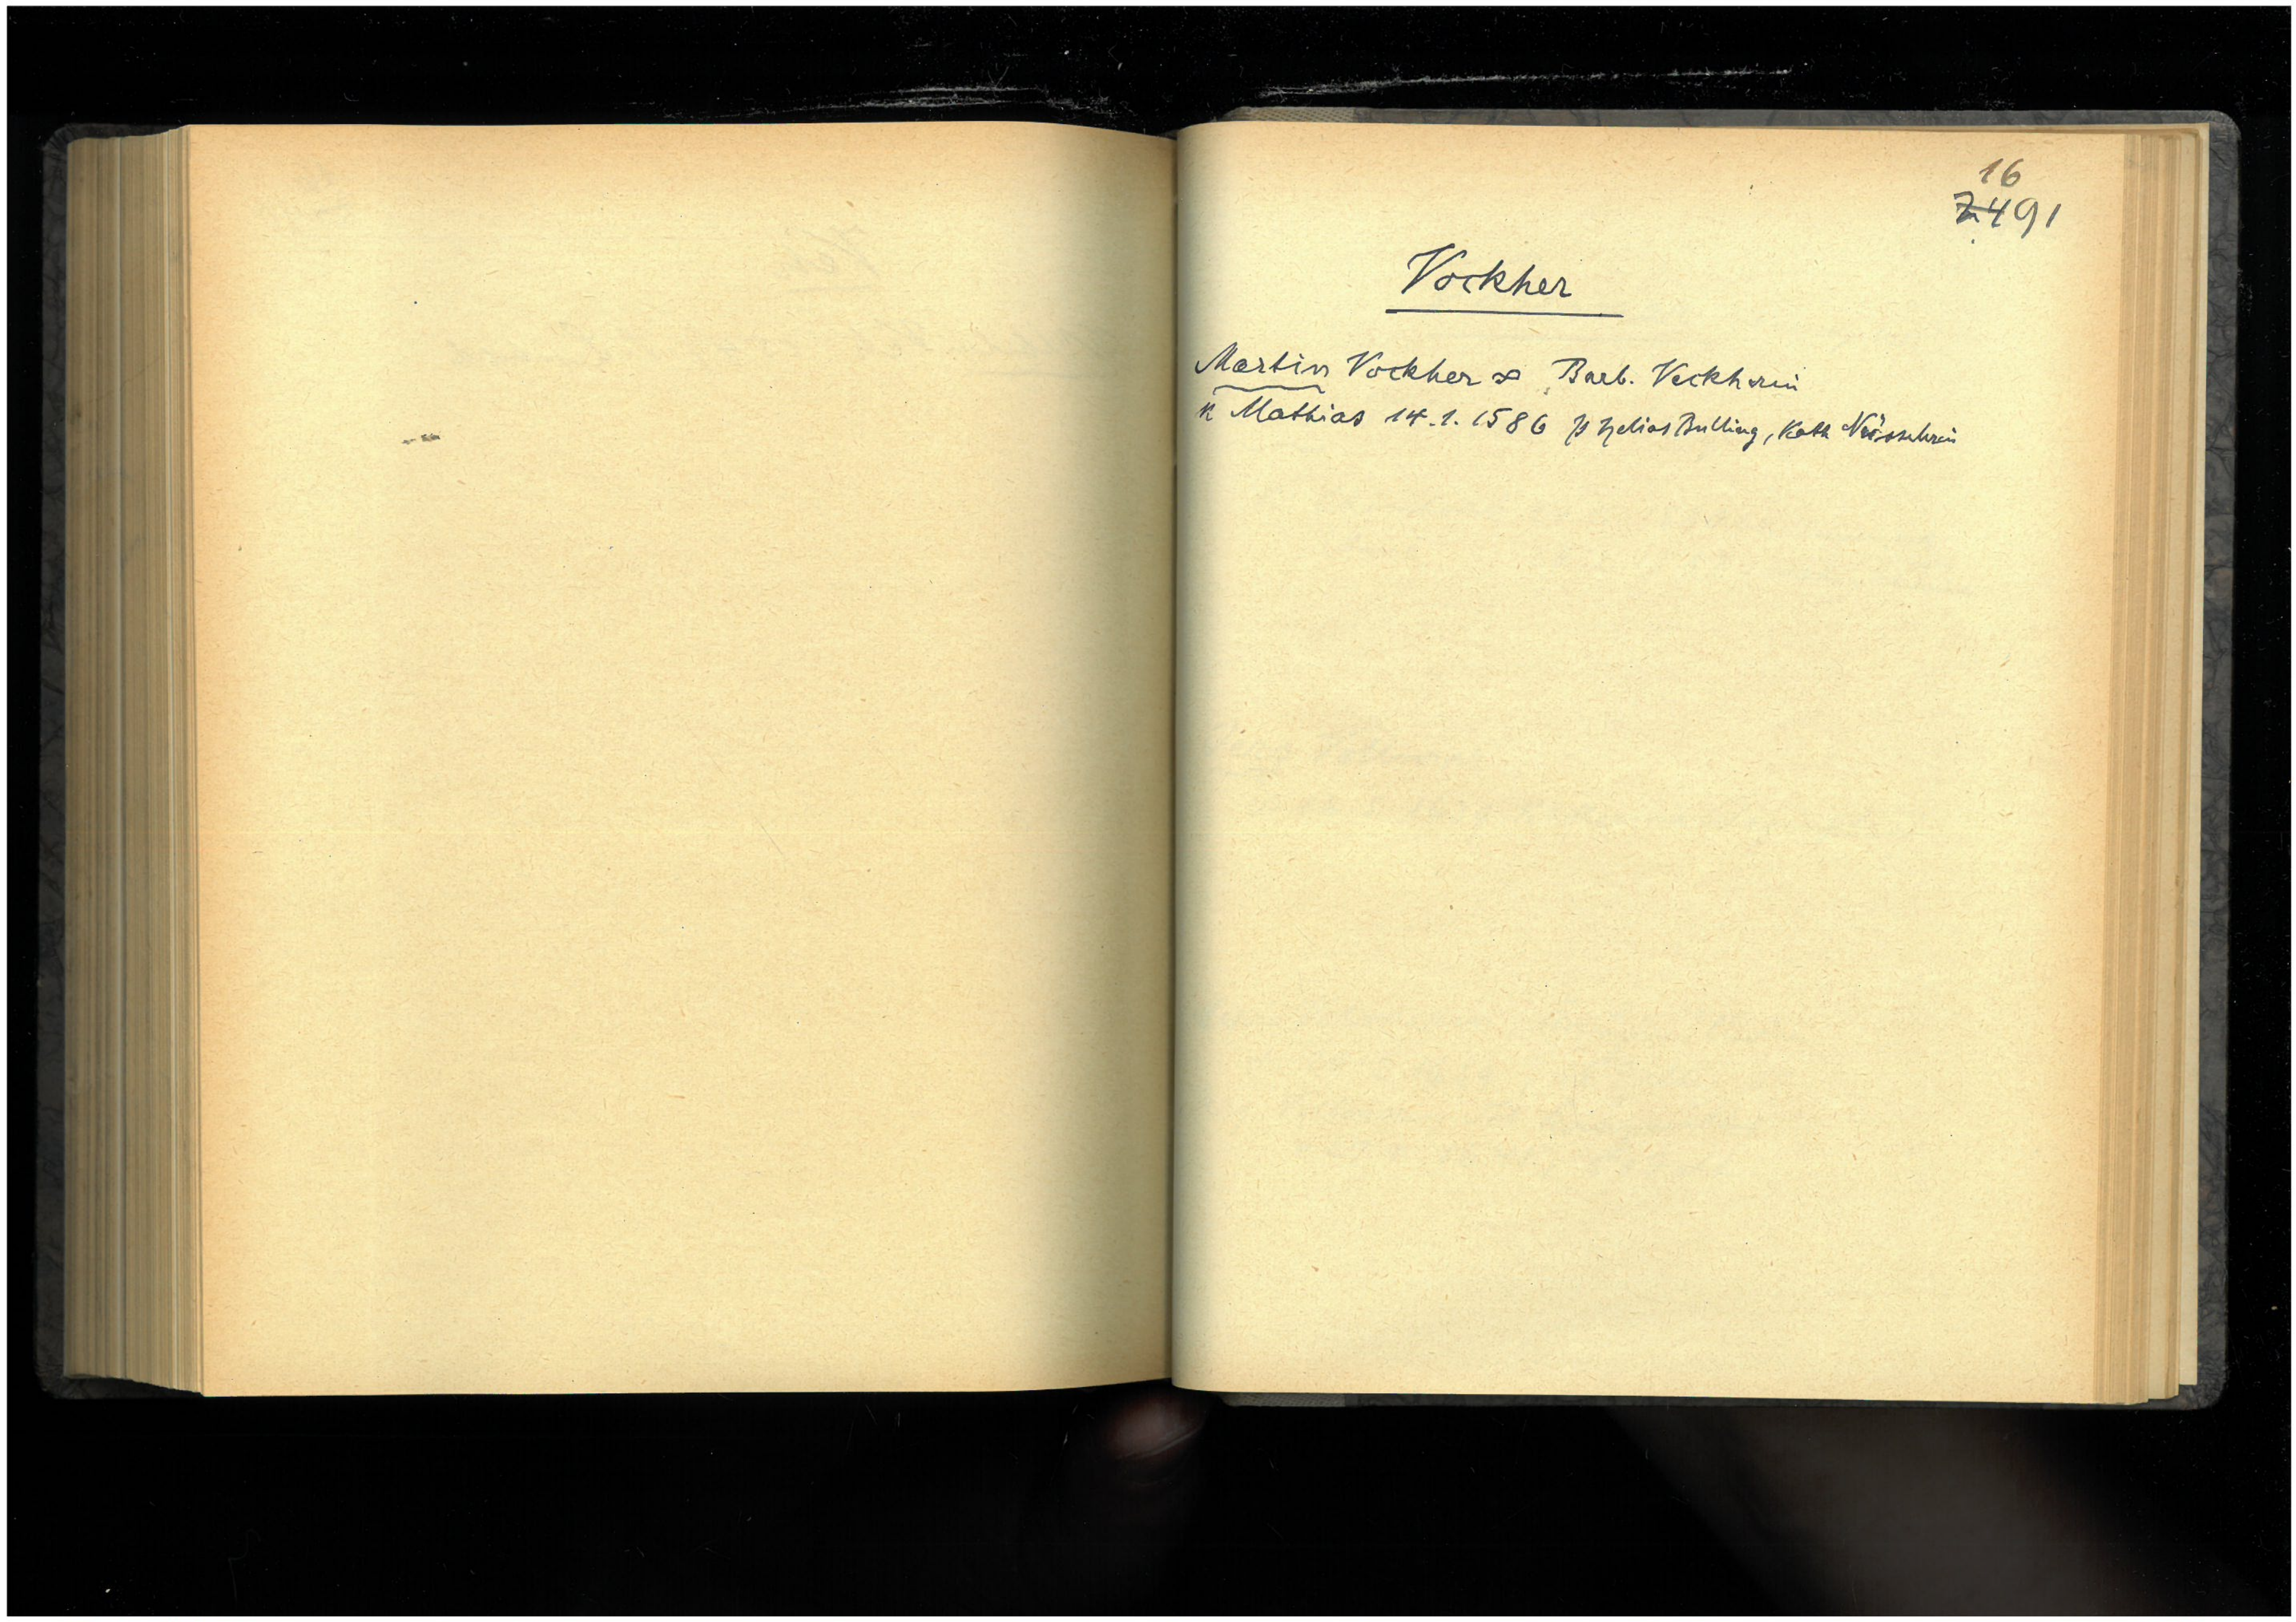 16
491
Vockher
Martin Vockher ∞ Barb. Vockherin
K Mathias 14.1.1586 p Helias Bulling, Kath